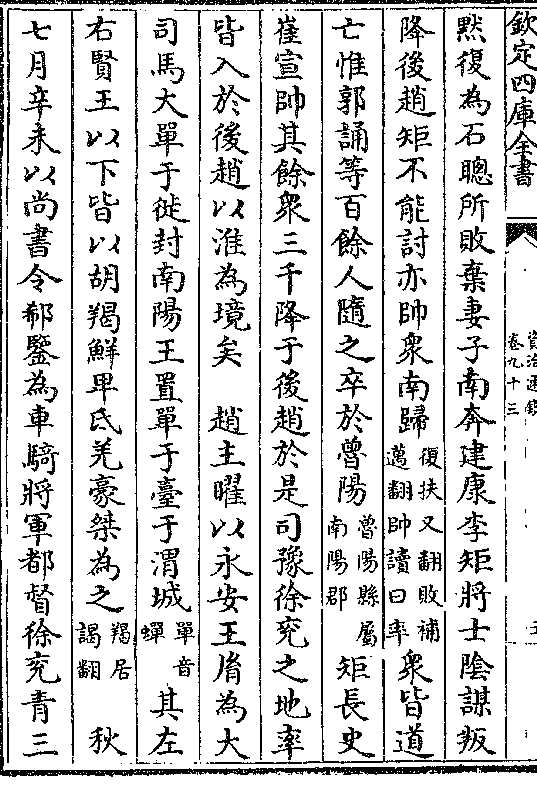 欽定四庫全書
資治通鑑
卷九十三
黙復為石聰所敗棄妻子南奔建康李矩將士陰謀叛
降後趙矩不能討亦帥衆南歸復扶又翻敗補邁翻帥讀曰率衆皆道
亡惟郭誦等百餘人隨之卒於魯陽魯陽縣屬南陽郡矩長史
崔宣帥其餘衆三千降于後趙於是司豫徐兖之地率
皆入於後趙以淮為境矣　趙主曜以永安王𦙍為大
司馬大單于徙封南陽王置單于臺于渭城單音蟬其左
右賢王以下皆以胡羯鮮卑氐羌豪桀為之羯居謁翻　秋
七月辛未以尚書令郗鑒為車騎將軍都督徐兖青三